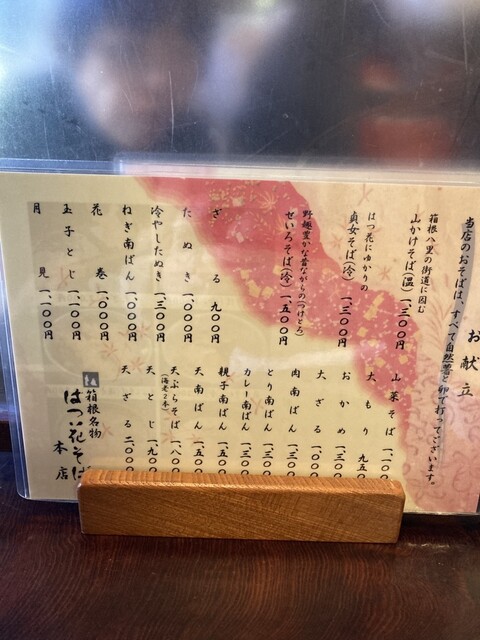 お献立
当店のおそばは、すべて自然薯と卵で打ってございます。
箱根八里の街道に因む
山かけそば(温) 一、三〇〇円
はつ花にゆかりの
貞女そば(冷) 一、三〇〇円
野趣豊かな昔ながらの(つけとろ)
せいろそば(冷) 一、五〇〇円
ざる 九〇〇円
たぬき 一、〇〇〇円
冷やしたぬき 一、三〇〇円
ねぎ南ばん 一、〇〇〇円
花巻 一、〇〇〇円
玉子とじ 一、一〇〇円
月見 一、一〇〇円
山菜そば 一、一〇
大もり 九五
おかめ 一、三〇
大ざる 一、
肉南ばん 一、三
とり南ばん 一、三〇
カレー南ばん 一、三〇
親子南ばん 一、五〇
天南ばん 一、五〇
天ぷらそば 一、八〇
(海老2本)
天とじ 一、九〇
天ざる 二〇〇
箱根名物
はつ花そば
本店